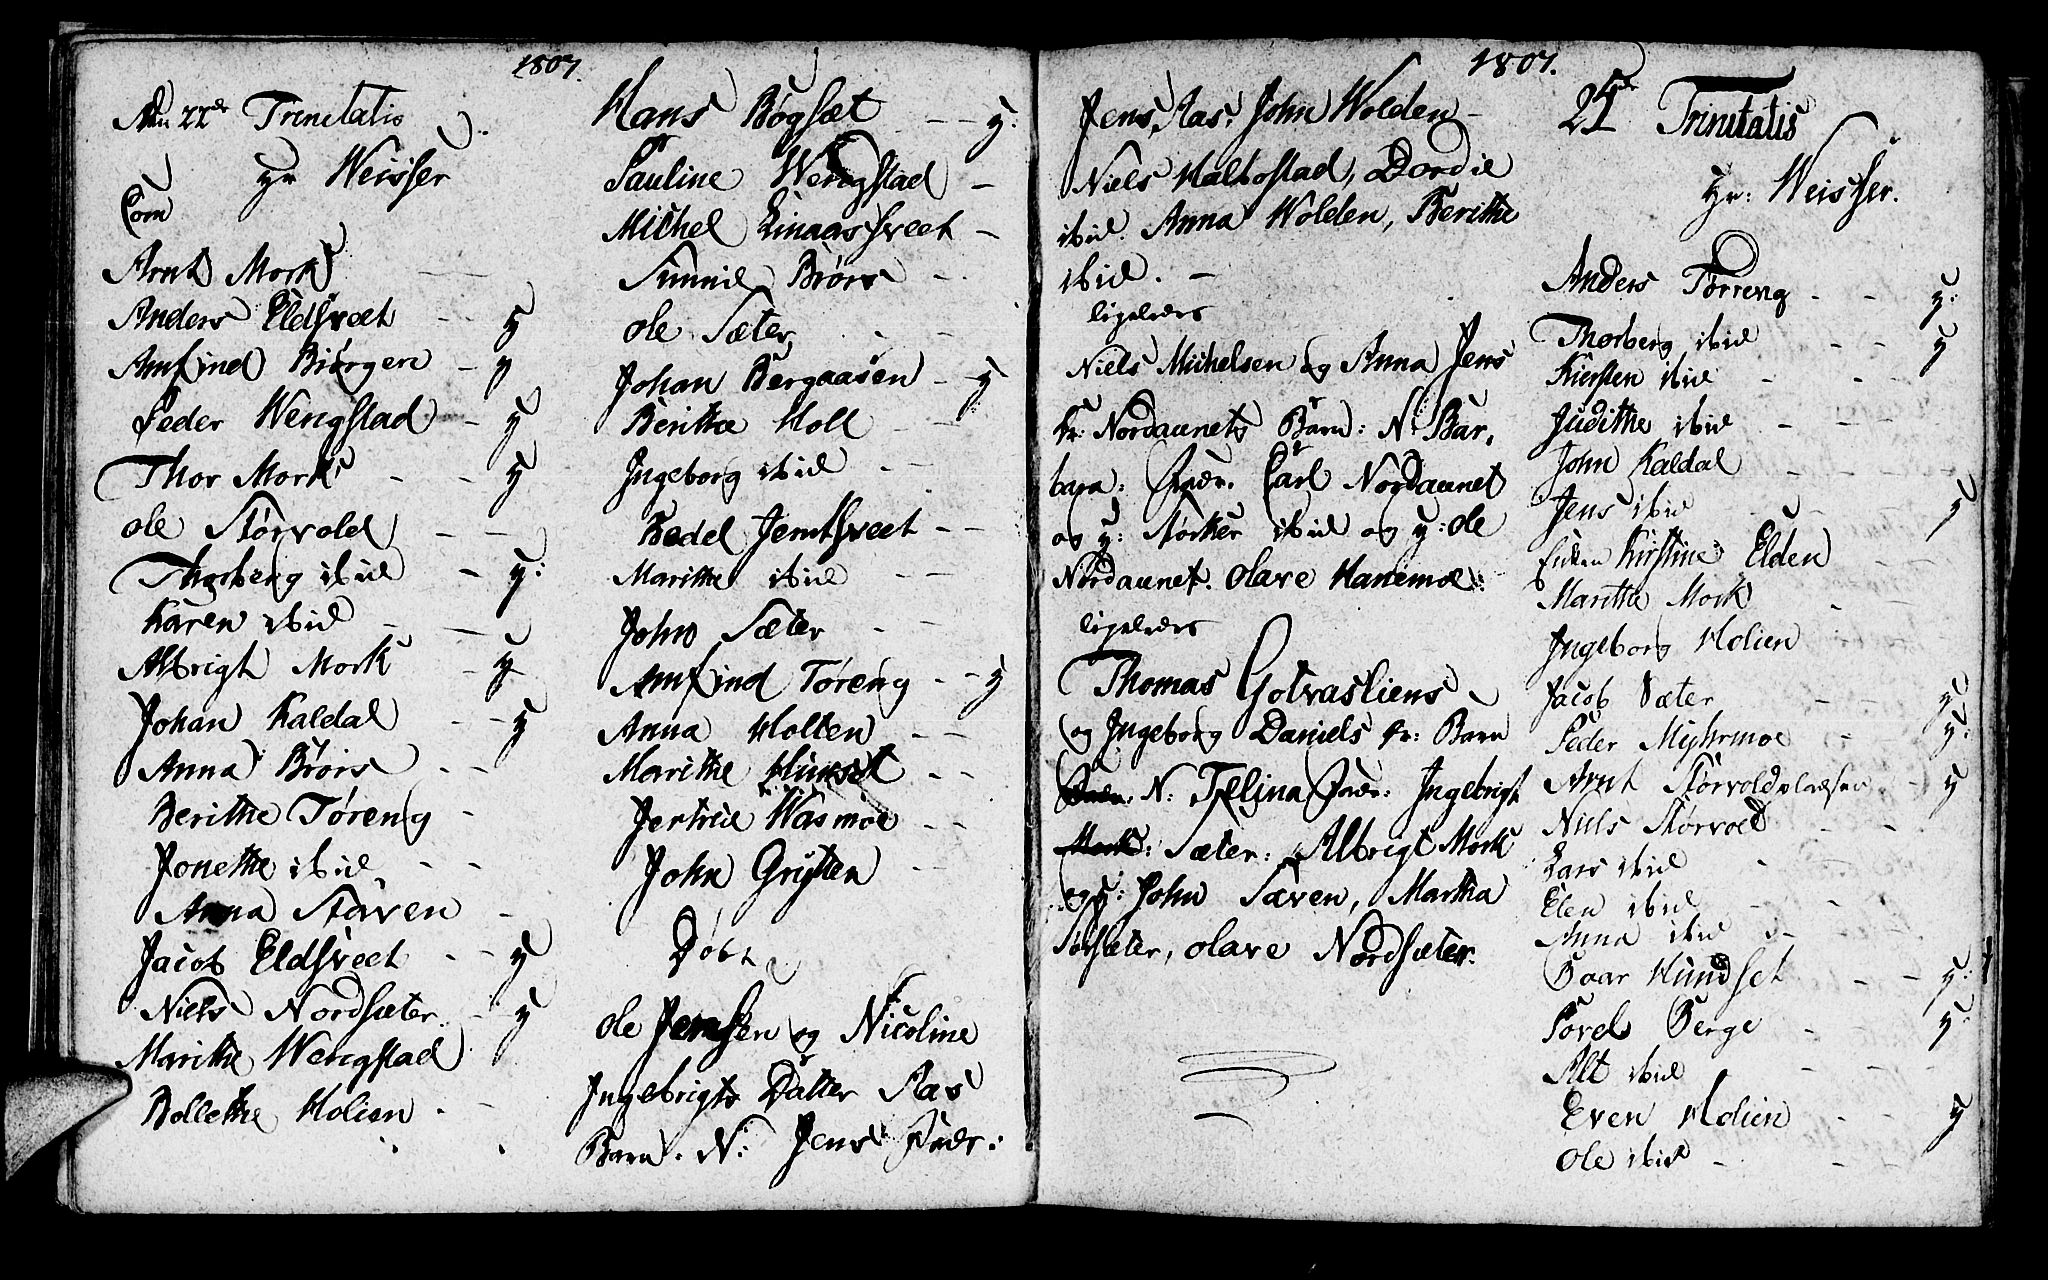 1807.
Dn 22de Trinitatis
Hr Weisser
Com
Arnt Mork - -
Anders Eldsveet - - y
Amfind Biørgen - y
Peder Wengstad - y
Thor Mork - - y
Ole Størvold - -
Thorberg ibid - y:
Karen ibid - -
Albrigt Mork - y
Johan Kaldal - - y
Anna Brørs - -
Berithe Tøreng -
Jonethe ibid - -
Anna Staven -
Jacob Eldsveet - - y
Niels Nordsæter - y
Marithe Wengstad
Bollethe Holien - -
Hans Bøgset - - y:
Pauline Wengstad -
Michel Linaassveet -
Sunnil Brørs -
Ole Sæter - -
Johan Bergaasen - y
Berithe Holl - -
Ingeborg ibid - -
Peder Jemtsveet - -
Marithe ibid - -
John Sæter - -
Amfind Tøreng - - y
Anna Holten - -
Marithe Hunset - -
Jertrue Wasmoe - -
John Grytten - -
Døbt
Ole Jensen og Nicoline
Ingebrigts Datter Aas
Barn. N: Jens Fadr:
1807.
Jens Aas, John Wolden -
Niels Haltostad, Dordie
ibid. Anna Wolden, Berithe
ibid. -
ligeledes
Niels Michelsen og Anna Jens
Dr: Nordaunets Barn: N: Bar,
bara: Fadr. Carl Nordaunet
og y: Størker ibid og y: Ole
Nordaunet. Olave Hanemoe:
ligeledes
Thomas Gotvasliens
og Ingeborg Daniels Dr: Barn
Fadr: N: Telina Fadr: Ingebrigt
Mork: Sæter: Albrigt Mork
og y: John Saven, Martha
Sørsæter, Olave Nordsæter.
24de Trinitatis
Hr: Weisser.
Anders Tørreng - - y:
Thorberg ibid - - y
Kiersten ibid - -
Judithe ibid - -
John Kaldal - - -
Jens ibid - - y
Enken Kirstine Elden
Marithe Mork -
Ingeborg Holien
Jacob Sæter - - y
Peder Myhrmoe - y:
Arnt Størvold - y
Niels Størvold - -
Lars ibid -
Elen ibid - -
Anna ibid - -
Baar Hundset - - y:
Povel Berge - y:
Alt ibid - - -
Even Holien - y
Ole ibid - -